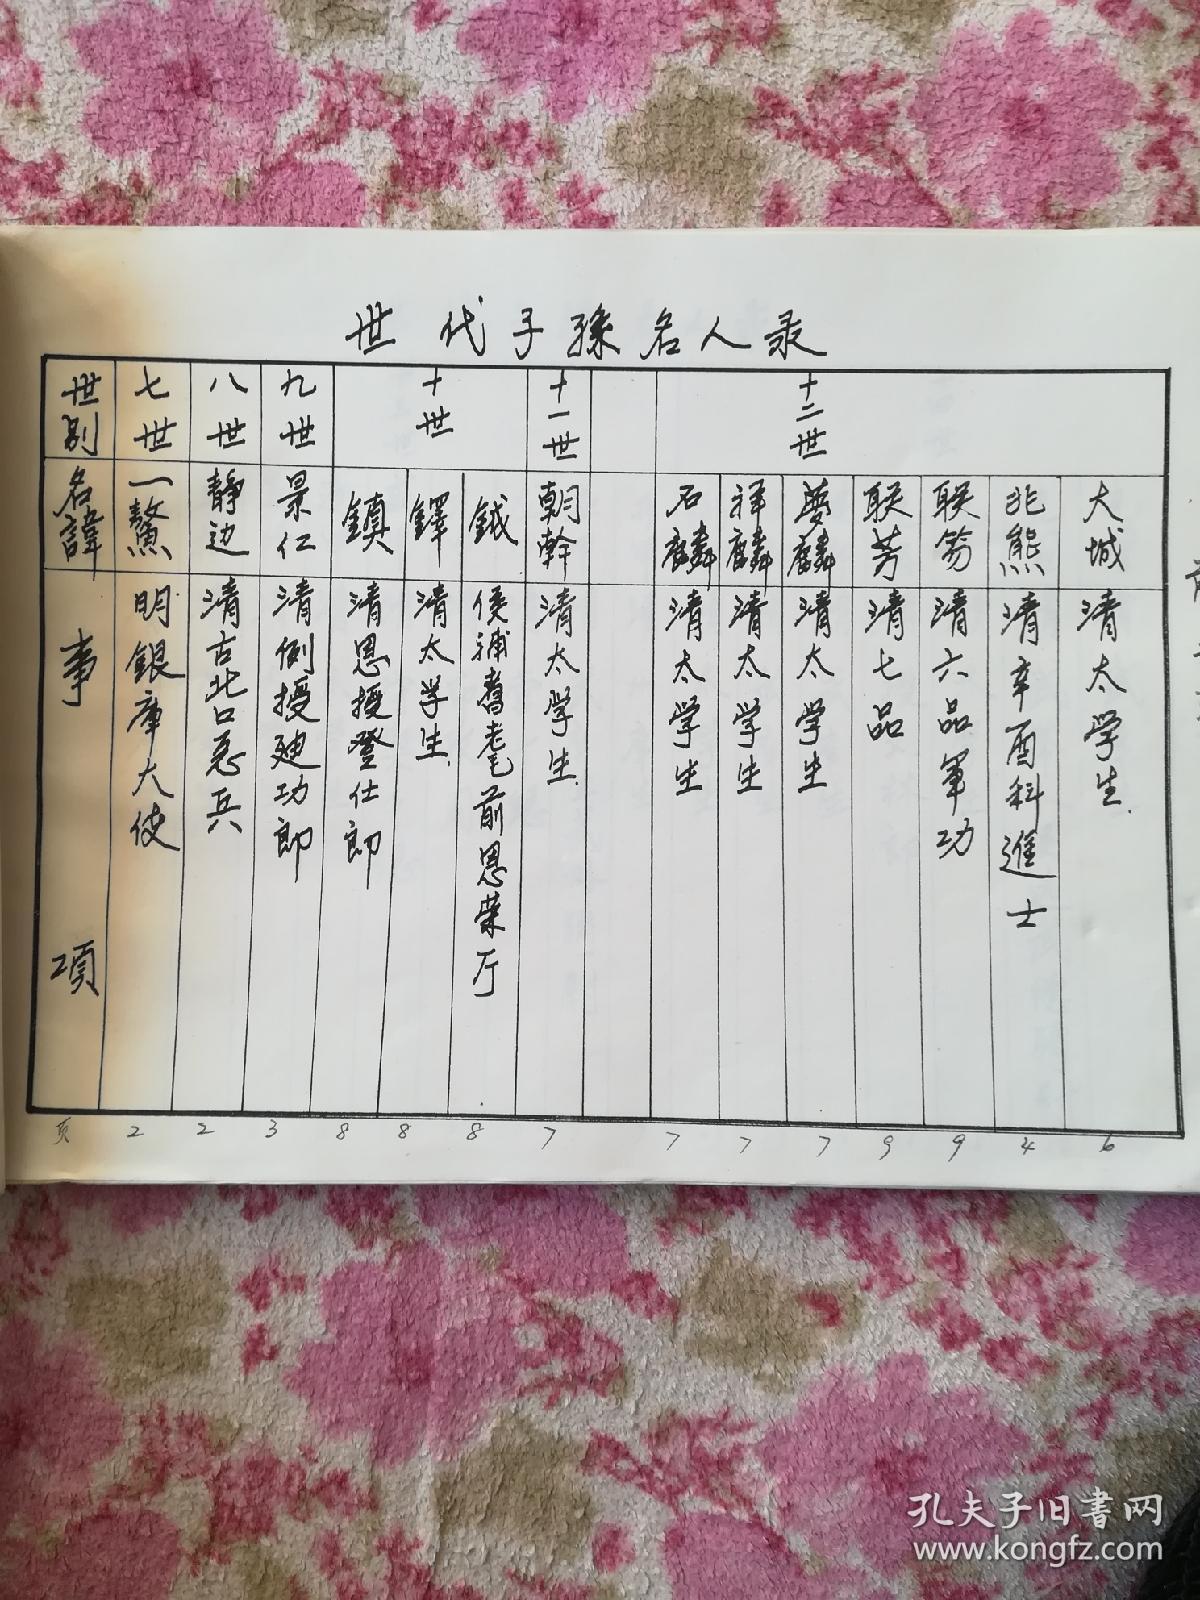 世代子孫名人录
世别 七世 八世 九世 十世 十一世 十二世
名諱 一鰲 静边 景仁 鎮 鐸 鉞 朝幹 石麟 祥麟 夢麟 联芳 联 兆熊 大城
事项
明銀庫大使
清古北口总兵
清例授廸功郎
清恩授登仕郎
清太学生
侯补耆耄前恩荣厅
清太学生
清太学生
清太学生
清太学生
清七品
清六品军功
清辛酉科進士
清太学生
页 2 2 3 8 8 8 7 7 7 7 9 9 4 6
孔夫子旧书网
www.kongfz.com